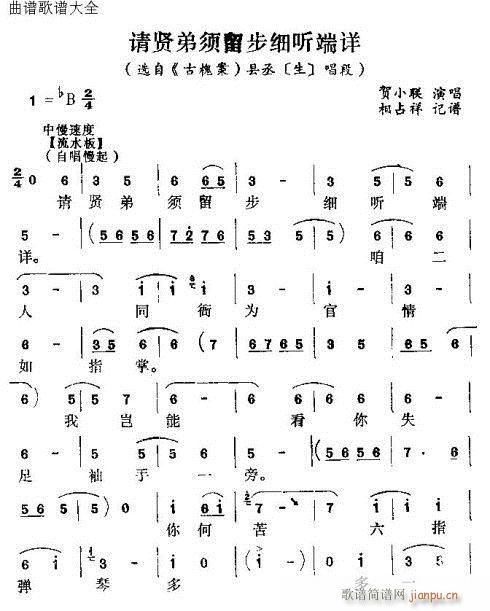 曲谱歌谱大全
请贤弟须留步细听端详
(选自《古槐案》县丞〔生〕唱段)
1=♭B 2/4
贺小联 演唱
相占祥 记谱
中慢速度
【流水板】
(自唱慢起)
2/4 0 6 | 3 5 | 6 65 | 3 - | 3 5 | 5 6 |
请 贤 弟 须 留 步 细 听 端
5 - | (5 6 5 6 | 7 2 7 6 | 5 6 5) | 6 6 |
详。 咱 二
3 - | 3 i | i i | 3 - | 3 3 |
人 同 衙 为 官 情
6 - | 35 5 | 6 6 | 6 (7 | 6 7 6 5 |
如 指 掌。
6) 5 | 5 7 | 6 - | 7 6 | 5 6 |
我 岂 能 看 你 失
6 - | 5 5 | 3 5 | 6 - | (5 6 5 6 | 7· 6 |
足 袖 于 一 旁。
5 6 6 5 | 6) i | i 6 i | 7 - | 7 i | i i |
你 何 苦 六 指
6 - | 3 | i - |
弹 琴 多 多 一
歌谱简谱网
jianpu.cn